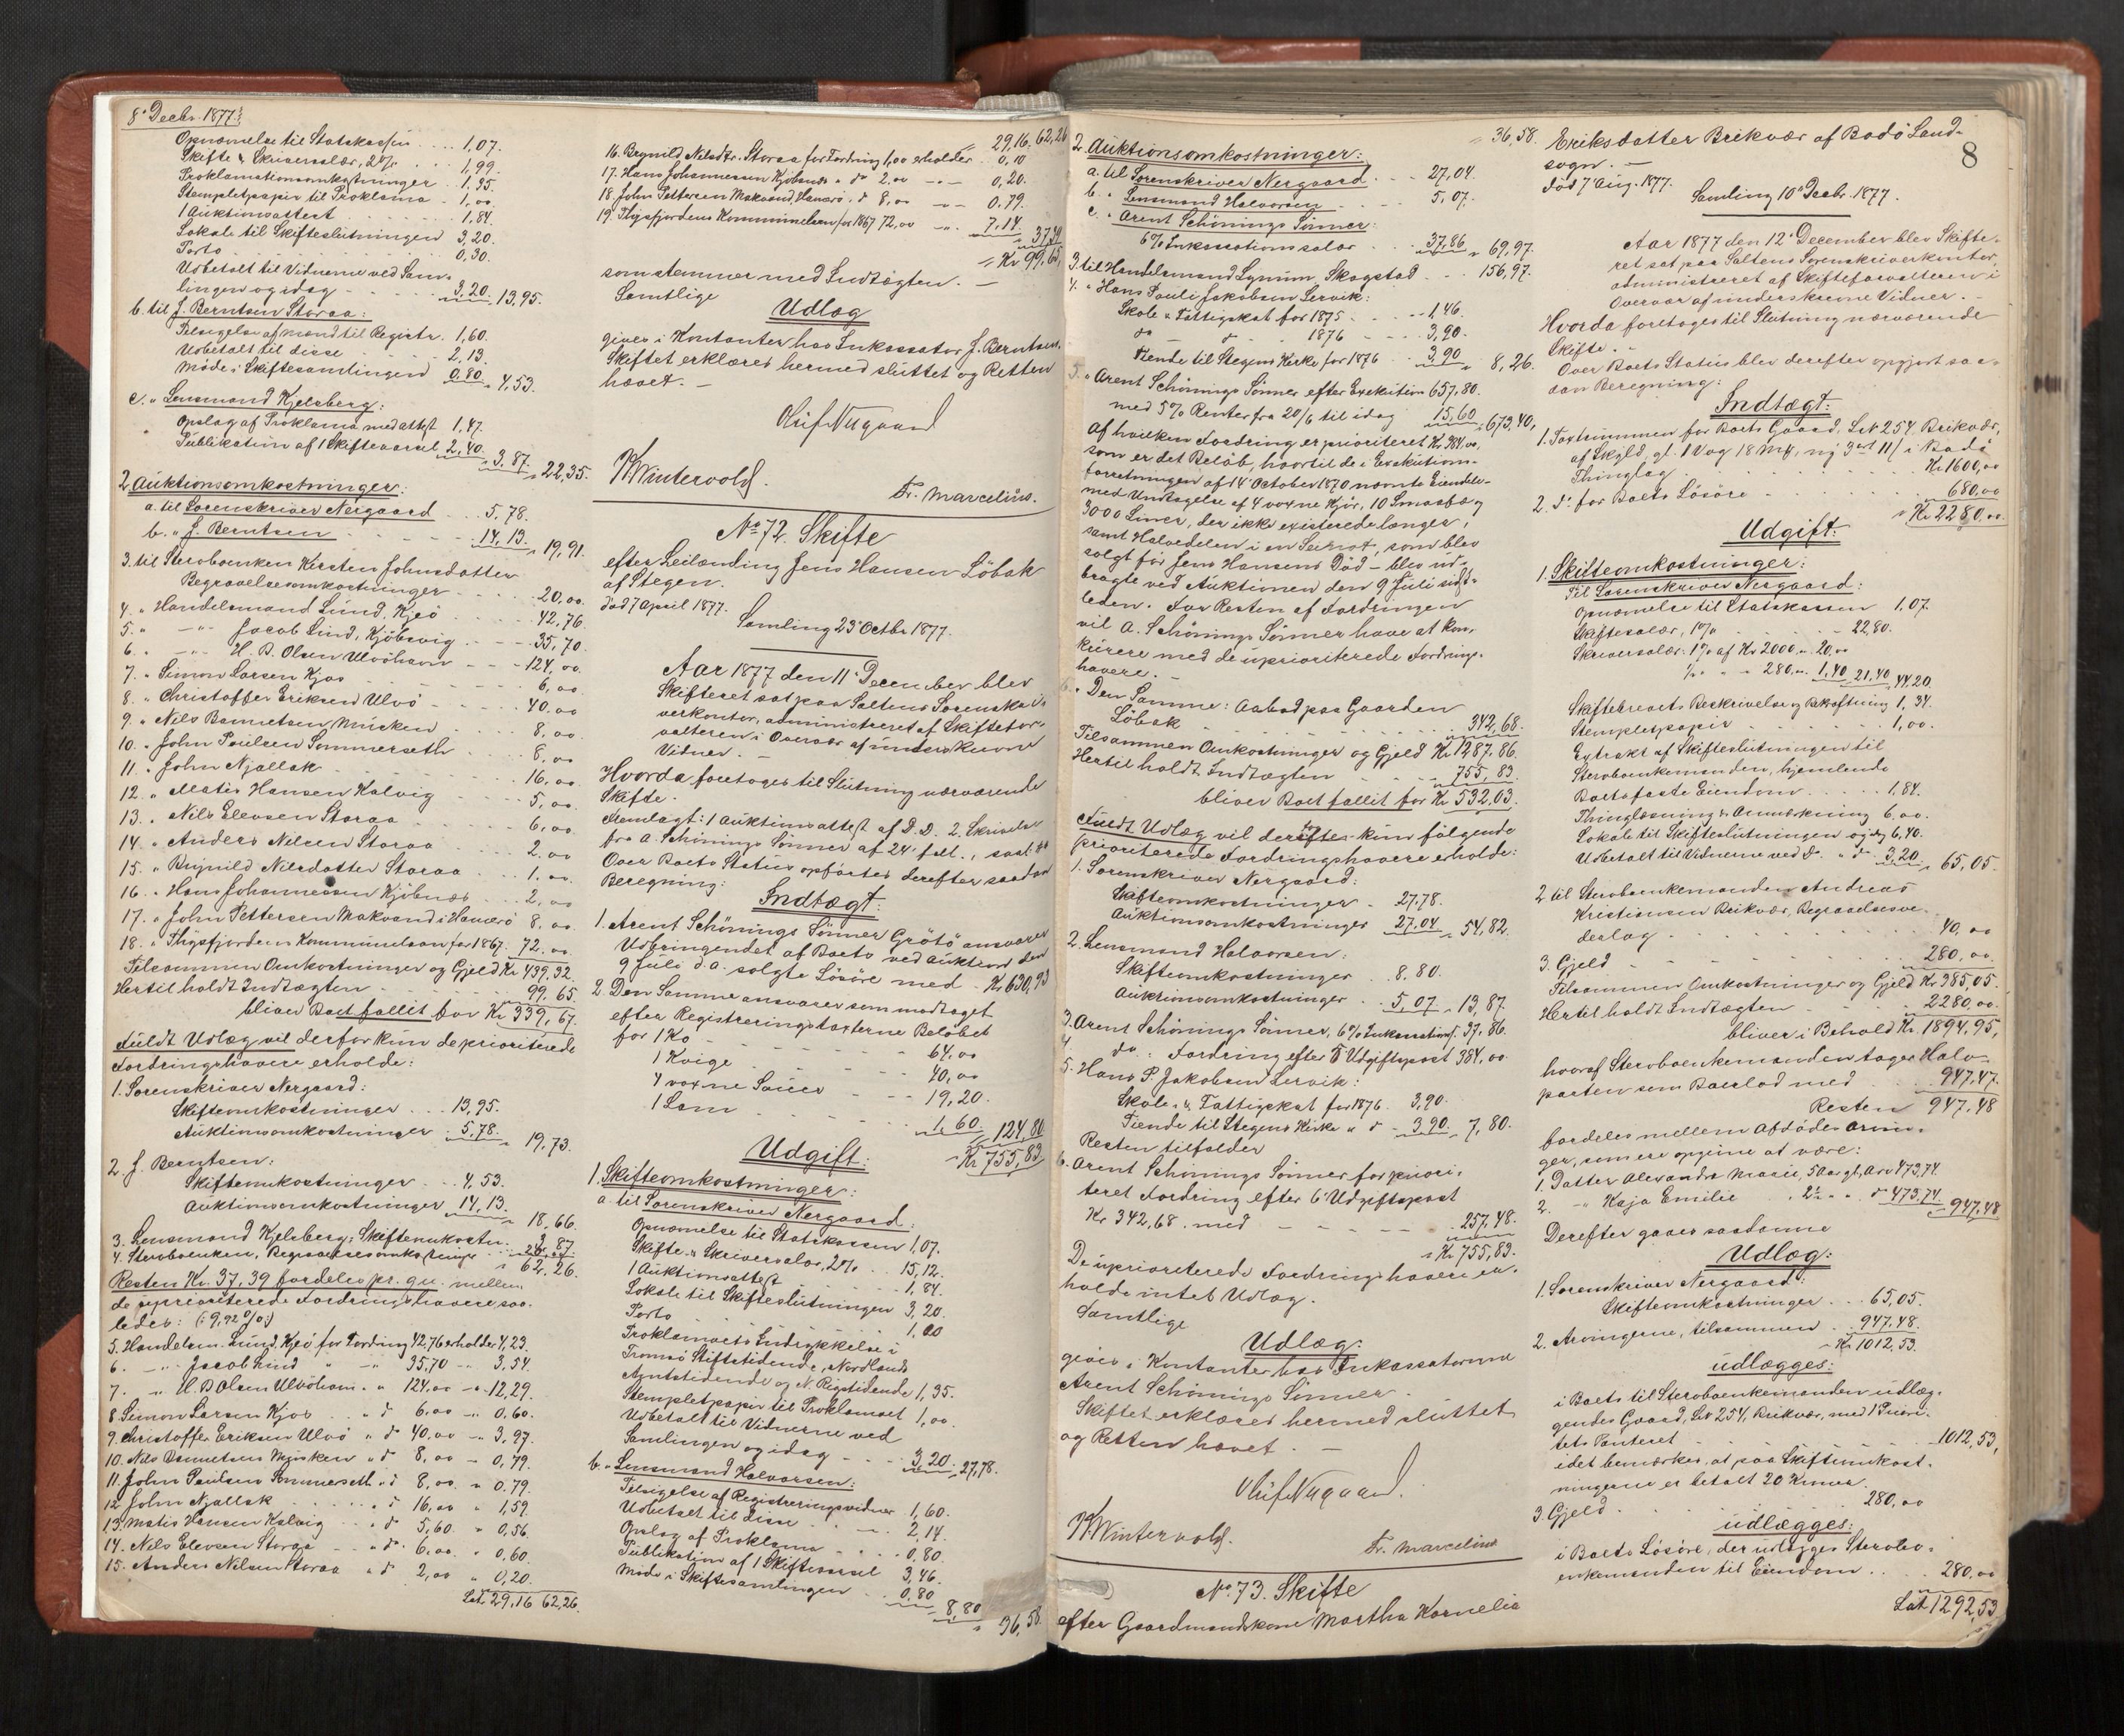 8' Decbr. 1877.
Opnævnelse til Statskassen 1,07.
Skifte & Skriversalær, 2% 1,99.
Proklamationsomkostninger 1,35.
Stempletpapir til Proklama 1,00.
1 Auktionsattest 1,84.
Lokale til Skifteslutningen 3,20.
Porto 0,30.
Udbetalt til Vidnerne ved Sam-
lingen og idag 3,20. 13,95.
b. til J. Berntsen Storaa:
Tilsigelse af Mænd til Registr. 1,60.
Udbetalt til disse 2,13.
Møde i Skiftesamlingen 0,80 4,53.
c. " Lensmand Kjelsberg:
Opslag af Proklama med attest 1,47.
Publikation af 1 Skiftevarsel 2,40.
3,87. 22,35.
2. Auktionsomkostninger:
a. til Sorenskriver Nergaard 5,78.
b. " J. Berntsen 14,13. 19,91.
3. til Sterboenken Kirsten Johnsdatter
Begravelsesomkostninger 20,00.
4. " Handelsmand Lund, Kjeö 42,76.
5. " -"- Jacob Lind, Kjöbsvig 35,70.
6. " -"- H. B. Olsen Ulvöhavn 124,00.
7. " Simon Larsen Kjos 6,00
8. " Christoffer Eriksen Ulvö 40,00
9. " Nils Bamretsen Musken 8,00.
10. " John Paulsen Sommerseth 8,00
11. " John Njallak 16,00
12. " Matis Hansen Kalvig 5,00.
13. " Nils Elevsen Storaa 6,00.
14. " Anders Nilsen Storaa 2,00
15. " Brynild Nilsdatter Storaa 1,00.
16. " Hans Johannessen Kjöbnæs 2,00
17. " John Pettersen Makvand i Hamarö 8,00
18. " Thysfjordens Kommunelaan for 1867. 72,00
Tilsammen Omkostninger og Gjeld Kr 439,32.
Hertil holdt Indtægten 99,65.
bliver Boet fallit for Kr 339,67.
Fuldt Udlæg vil derfor kun de prioriterede
Fordringshavere erholde:
1. Sorenskriver Nergaard:
Skifteomkostninger 13,95.
Auktionsomkostninger 5,78. 19,73.
2. J. Berntsen:
Skifteomkostninger 4,53.
Auktionsomkostninger 14,13. 18,66.
3. Lensmand Kjelsberg: Skifteomkostn. 3,87.
4. Sterboenken, Begravelsesomkostninger 20,00.
62,26.
Resten Kr. 37,39 fordeles pr. qu. mellem
de uprioriterede Fordringshavere saa-
ledes: (: 9,92 % :)
5. Handelsm. Lund, Kjeö for Fordring 42,76 erholder 4,23.
6. -"- Jacob Lind " -"- 35,70 -"- 3,54.
7. " H. B Olsen Ulvöhavn. " 124,00 -"- 12,29.
8. Simon Larsen Kjos " d 6,00 -"- 0,60.
9. Christoffer Eriksen Ulvö " d 40,00 -"- 3,97.
10. Nils Bamretsen Musken " d 8,00 -"- 0,79.
11. John Paulsen Sommerseth " d 8,00. " 0.79.
12. John Njallak " d 16,00 " 1,59.
13. Matis Hansen Kalvig " d 5,60. " 0,56.
14. Nils Elevsen Storaa " d 6,00. " 0,60.
15. Anders Nilsen Storaa " d 2,00 " 0,20.
Lat. 29,16 62,26.
29,16. 62,26
16. Brynild Nilsdtr. Storaa for Fordring 1,00 erholder 0,10
17. Hans Johannessen Kjöbnæs " d 2,00 -"- 0,20.
18. John Pettersen Makvand, Hamarö " d 8,00 -"- 0,79.
19. Thysfjordens Kommunelaan for 1867 72,00 -"- 7,14.
37,39
Kr 99,65,
som stemmer med Indtægten.
Samtlige
Udlæg
gives i Kontanter hos Inkassator J. Berntsen.
Skiftet erklæres hermed sluttet og Retten
hævet. —
Oluf Nygaard
K. Wintervold.
Fr. Marcelius.
No 72. Skifte
efter Leilænding Jens Hansen Löbak
af Stegen.
död 7 April 1877.
Samling 23' Octbr 1877.
Aar 1877 den 11' December blev
Skifteret sat paa Saltens Sorenskri-
verkontor, administreret af Skiftefor-
valteren i Overvær af underskrevne
Vidner. —
Hvorda foretoges til Slutning nærværende
Skifte.
Fremlagt: 1 Auktionsattest af D. D. 2. Skrivelse
fra A. Schönings Sønner af 24' f. M.
Over Boets Status opførtes derefter saadan
Beregning:
Indtægt:
1. Arent Schönings Sønner Grötö ansvarer
Udbringendet af Boets ved Auktion den
9 Juli d. A. solgte Lösöre med Kr 630,93
2. Den Samme ansvarer som modtaget
efter Registreringstaxterne Beløbet
for 1 Ko 64,00
1 Kvige 40,00
4 voxne Sauer 19,20.
1 Lam 1,60. 124,80
Kr 755,83
Udgift:
1. Skifteomkostninger:
a. til Sorenskriver Nergaard:
Opnævnelse til Statskassen 1,07.
Skifte- & Skriversalær, 2% 15,12.
1 Auktionsattest 1,84.
Lokale til Skifteslutningen 3,20
Porto 1,00
Proklamaets Indrykkelse i
Tromsö Stiftstidende, Nordlands
Amtstidende og N. Rigstidende 1,35.
Stempletpapir til Proklamaet 1,00.
Udbetalt til Vidnerne ved
Samlingen og idag 3,20. 27,78.
b. " Lensmand Halvorsen:
Tilsigelse af Registreringsvidner 1,60.
Udbetalt til disse 2,14.
Opslag af Proklama 0,80.
Publikation af 1 Skiftevarsel 3,46.
Møde i Skiftesamlingen 0,80
8,80
36,58.
36,58.
2. Auktionsomkostninger:
a. til Sorenskriver Nergaard 27,04.
b. " Lensmand Halvorsen 5,07.
c. " Arent Schönings Sønner:
6% Inkassationssalær 37,86 69,97.
3. til Handelsmand Lynum Skogstad 156,97.
4. " Hans Pauli Jakobsen Lervik:
Skole & Fattigskat for 1875 1,46.
do d 1876 3,90.
Tiende til Stegens Kirke for 1876 3,90 8,26.
5. " Arent Schönings Sønner efter Exekution 657,80.
med 5% Renter fra 20/6 til idag 15,60. 673,40,
af hvilken Fordring er prioriteret Kr 384,00,
som er det Beløb, hvortil de i Exekutions-
forretningen af 14' October 1870 nævnte Eiendele-
med Undtagelse af 4 voxne Kjör, 10 Smaafæ og
3000 Liner, der ikke existerede længer,
samt Halvedelen i en Seinot, som blev
solgt før Jens Hansens Død – blev ud-
bragte ved Auktionen den 9 Juli sidst-
leden. For Resten af Fordringen
vil A. Schönings Sønner have at kon-
kurere med de uprioriterede Fordrings-
havere. —
6. " Den Samme: Aabod paa Gaarden
Löbak 342,68.
Tilsammen Omkostninger og Gjeld Kr 1287,86.
Hertil holdt Indtægten 755,83.
bliver Boet fallit for Kr 532,03.
Fuldt Udlæg vil derefter kun følgende
prioriterede Fordringshavere erholde:
1. Sorenskriver Nergaard:
Skifteomkostninger 27,78.
Auktionsomkostninger 27,04 54,82.
2. Lensmand Halvorsen:
Skifteomkostninger 8.80.
Auktionsomkostninger 5,07. 13,87.
3. Arent Schönings Sønner, 6% Inkassations. 37,86.
4. do. Fordring efter 5' Udgiftspost 384,00.
5. Hans P. Jakobsen Lervik:
Skole & Fattigskat for 1876 3,90.
Tiende til Stegens Kirke " d 3,90. 7,80.
Resten tilfalder
6. Arent Schönings Sønner for priori-
teret Fordring efter 6' Udgiftspost
Kr 342,68. med 257,48.
Kr 755,83.
De uprioriterede Fordringshavere er-
holde intet Udlæg.
Samtlige
Udlæg:
gives i Kontanter hos Inkassatorerne
Arent Schönings Sønner.
Skiftet erklæres hermed sluttet
og Retten hævet. —
Oluf Nygaard.
K. Wintervold.
Fr. Marcelius
No. 73. Skifte
efter Gaardmandskone Martha Kornelia
Eriksdatter Brekvær af Bodö Land-
sogn. —
död 7' Aug. 1877.
8
Samling 10' Decbr. 1877.
Aar 1877 den 12' December blev Skifte-
ret sat paa Saltens Sorenskriverkontor,
administreret af Skifteforvalteren i
Overvær af underskrevne Vidner. —
Hvorda foretoges til Slutning nærværende
Skifte. —
Over Boets Status blev derefter opgjort saa-
dan Beregning:
Indtægt:
1. Taxtsummen for Boets Gaard, L.N 254 Brikvær,
af Skyld, gl. 1 Vog 18 Mk, ny 3 ort 11 / i Bodö
Thinglag Kr 1600,00
2. d. for Boets Lösöre 680,00
Kr 2280,00.
Udgift:
1. Skifteomkostninger:
Til Sorenskriver Nergaard:
Opnævnelse til Statskassen 1,07.
Skiftesalær, 1% 22,80.
Skriversalær: 1% af Kr 2000 = 20,00
½ " - 280,00 1,40 21,40 44,20
Skiftebrevets Beskrivelse og Bekræftning 1,34.
Stempletpapir 1,00.
Extrakt af Skifteslutningen til
Sterboenkemanden, hjemlende
Boets faste Eiendom 1,84.
Thinglæsning & Anmærkning 6,00.
Lokale til Skifteslutningen og idag 6,40.
Udbetalt til Vidnerne ved do. " d 3,20 65,05.
2. til Sterboenkemanden Andreas
Kristiansen Brikvær, Begravelsesve-
derlag 40,00
3. Gjeld 280,00.
Tilsammen Omkostninger og Gjeld Kr 385,05.
Hertil holdt Indtægten 2280,00.
bliver i Behold Kr. 1894,95,
hvoraf Sterboenkemanden tager Halv-
parten som Boeslod med 947,47.
Resten 947,48
fordeles mellem Afdödes Arvin-
ger, som ere opgivne at være:
1. Datter Alexandra Marie, 5 Aar gl, Arv 473,74
2. -"- Kaja Emilie " 2½ " " d 473,74. 947,48
Derefter gjøres saadanne
Udlæg:
1. Sorenskriver Nergaard:
Skifteomkostninger 65,05.
2. Arvingerne, tilsammen 947,48.
Kr 1012,53.
udlægges:
i Boets til Sterboenkemanden udlæg-
gendes Gaard, L.N 254, Brikvær, med 1' Priori-
tets Panteret 1012,53,
idet bemærkes, at paa Skifteomkost-
ningerne er betalt 20 Kroner.
3. Gjeld 280,00
udlægges:
i Boets Lösöre, der udlægges Sterbo-
enkemanden til Eiendom 280,00
Lat. 1292,53